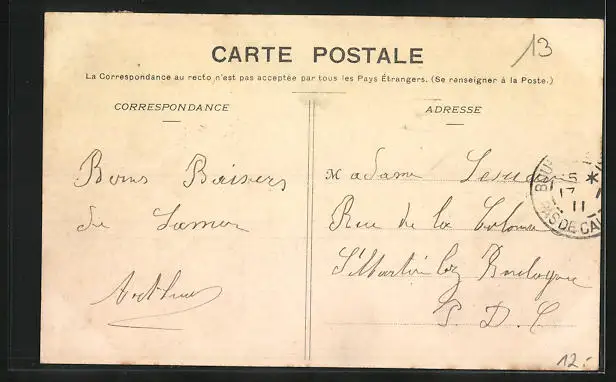 13
CARTE POSTALE
La Correspondance au recto n'est pas acceptée par tous les Pays Étrangers. (Se renseigner à la Poste.)
CORRESPONDANCE
ADRESSE
Bons Baisers
de Samer
Arthur
Madame
Rue de la Colonne
St Martin lez Boulogne
P. D. C
BOU
15 *
17 1
11
PAS DE CAL
12.-